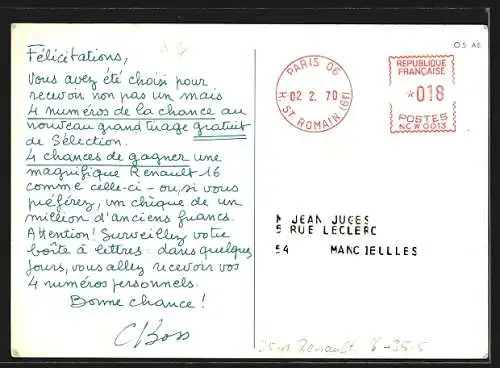 Félicitations,
Vous avez été choisi pour
recevoir non pas un mais
4 numéros de la chance au
nouveau grand tirage gratuit
de Sélection.
4 chances de gagner une
magnifique Renault 16
comme celle-ci - ou, si vous
préférez, un chèque de un
million d'anciens francs.
Attention! Surveillez votre
boîte à lettres: dans quelques
jours, vous allez recevoir vos
4 numéros personnels.
Bonne chance!
C Boss
PARIS 06
02 2. 70
R. ST ROMAIN (91)
OS A6
REPUBLIQUE
FRANÇAISE
*018
POSTES
NCW 0013
M JEAN JUGES
5 RUE LECLERC
54 MANCIELLLES
Renault 16